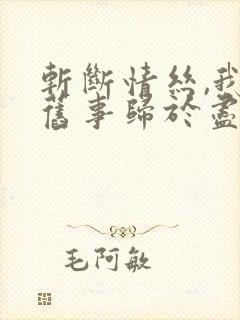 斬斷情絲,我
舊事歸於盡
毛阿敏